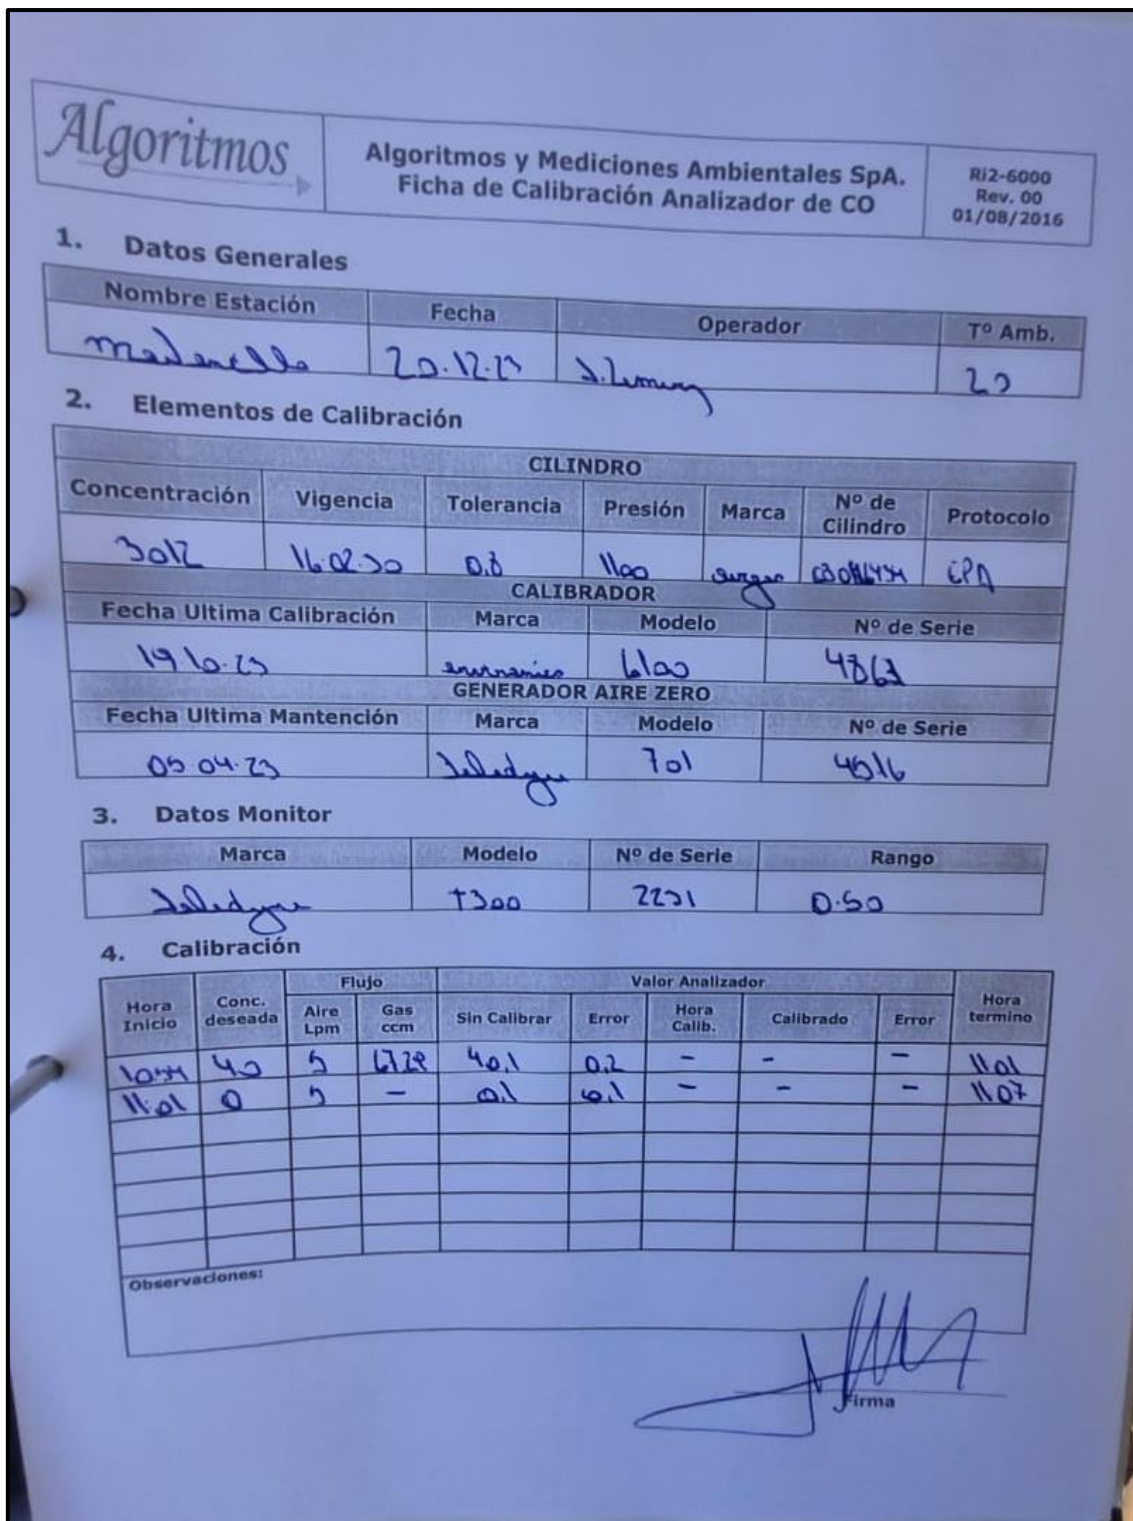 Algoritmos
Algoritmos y Mediciones Ambientales SpA.
Ficha de Calibración Analizador de CO
Ri2-6000
Rev. 00
01/08/2016
1. Datos Generales
Nombre Estación Fecha Operador Tº Amb.
20.12.23 20
2. Elementos de Calibración
CILINDRO
Concentración Vigencia Tolerancia Presión Marca Nº de Cilindro Protocolo
3012 16.02.30 0.8 1100 EPA
CALIBRADOR
Fecha Ultima Calibración Marca Modelo Nº de Serie
19 10.23 6100
GENERADOR AIRE ZERO
Fecha Ultima Mantención Marca Modelo Nº de Serie
05 04.23 Teledyne 701 4516
3. Datos Monitor
Marca Modelo Nº de Serie Rango
Teledyne T300 2231 0.50
4. Calibración
Flujo Valor Analizador
Hora Inicio Conc. deseada Aire Lpm Gas ccm Sin Calibrar Error Hora Calib. Calibrado Error Hora termino
40 5 40,1 0.2 - - - 11 01
11:01 0 5 - 0.1 0.1 - - - 11 07
Observaciones:
Firma